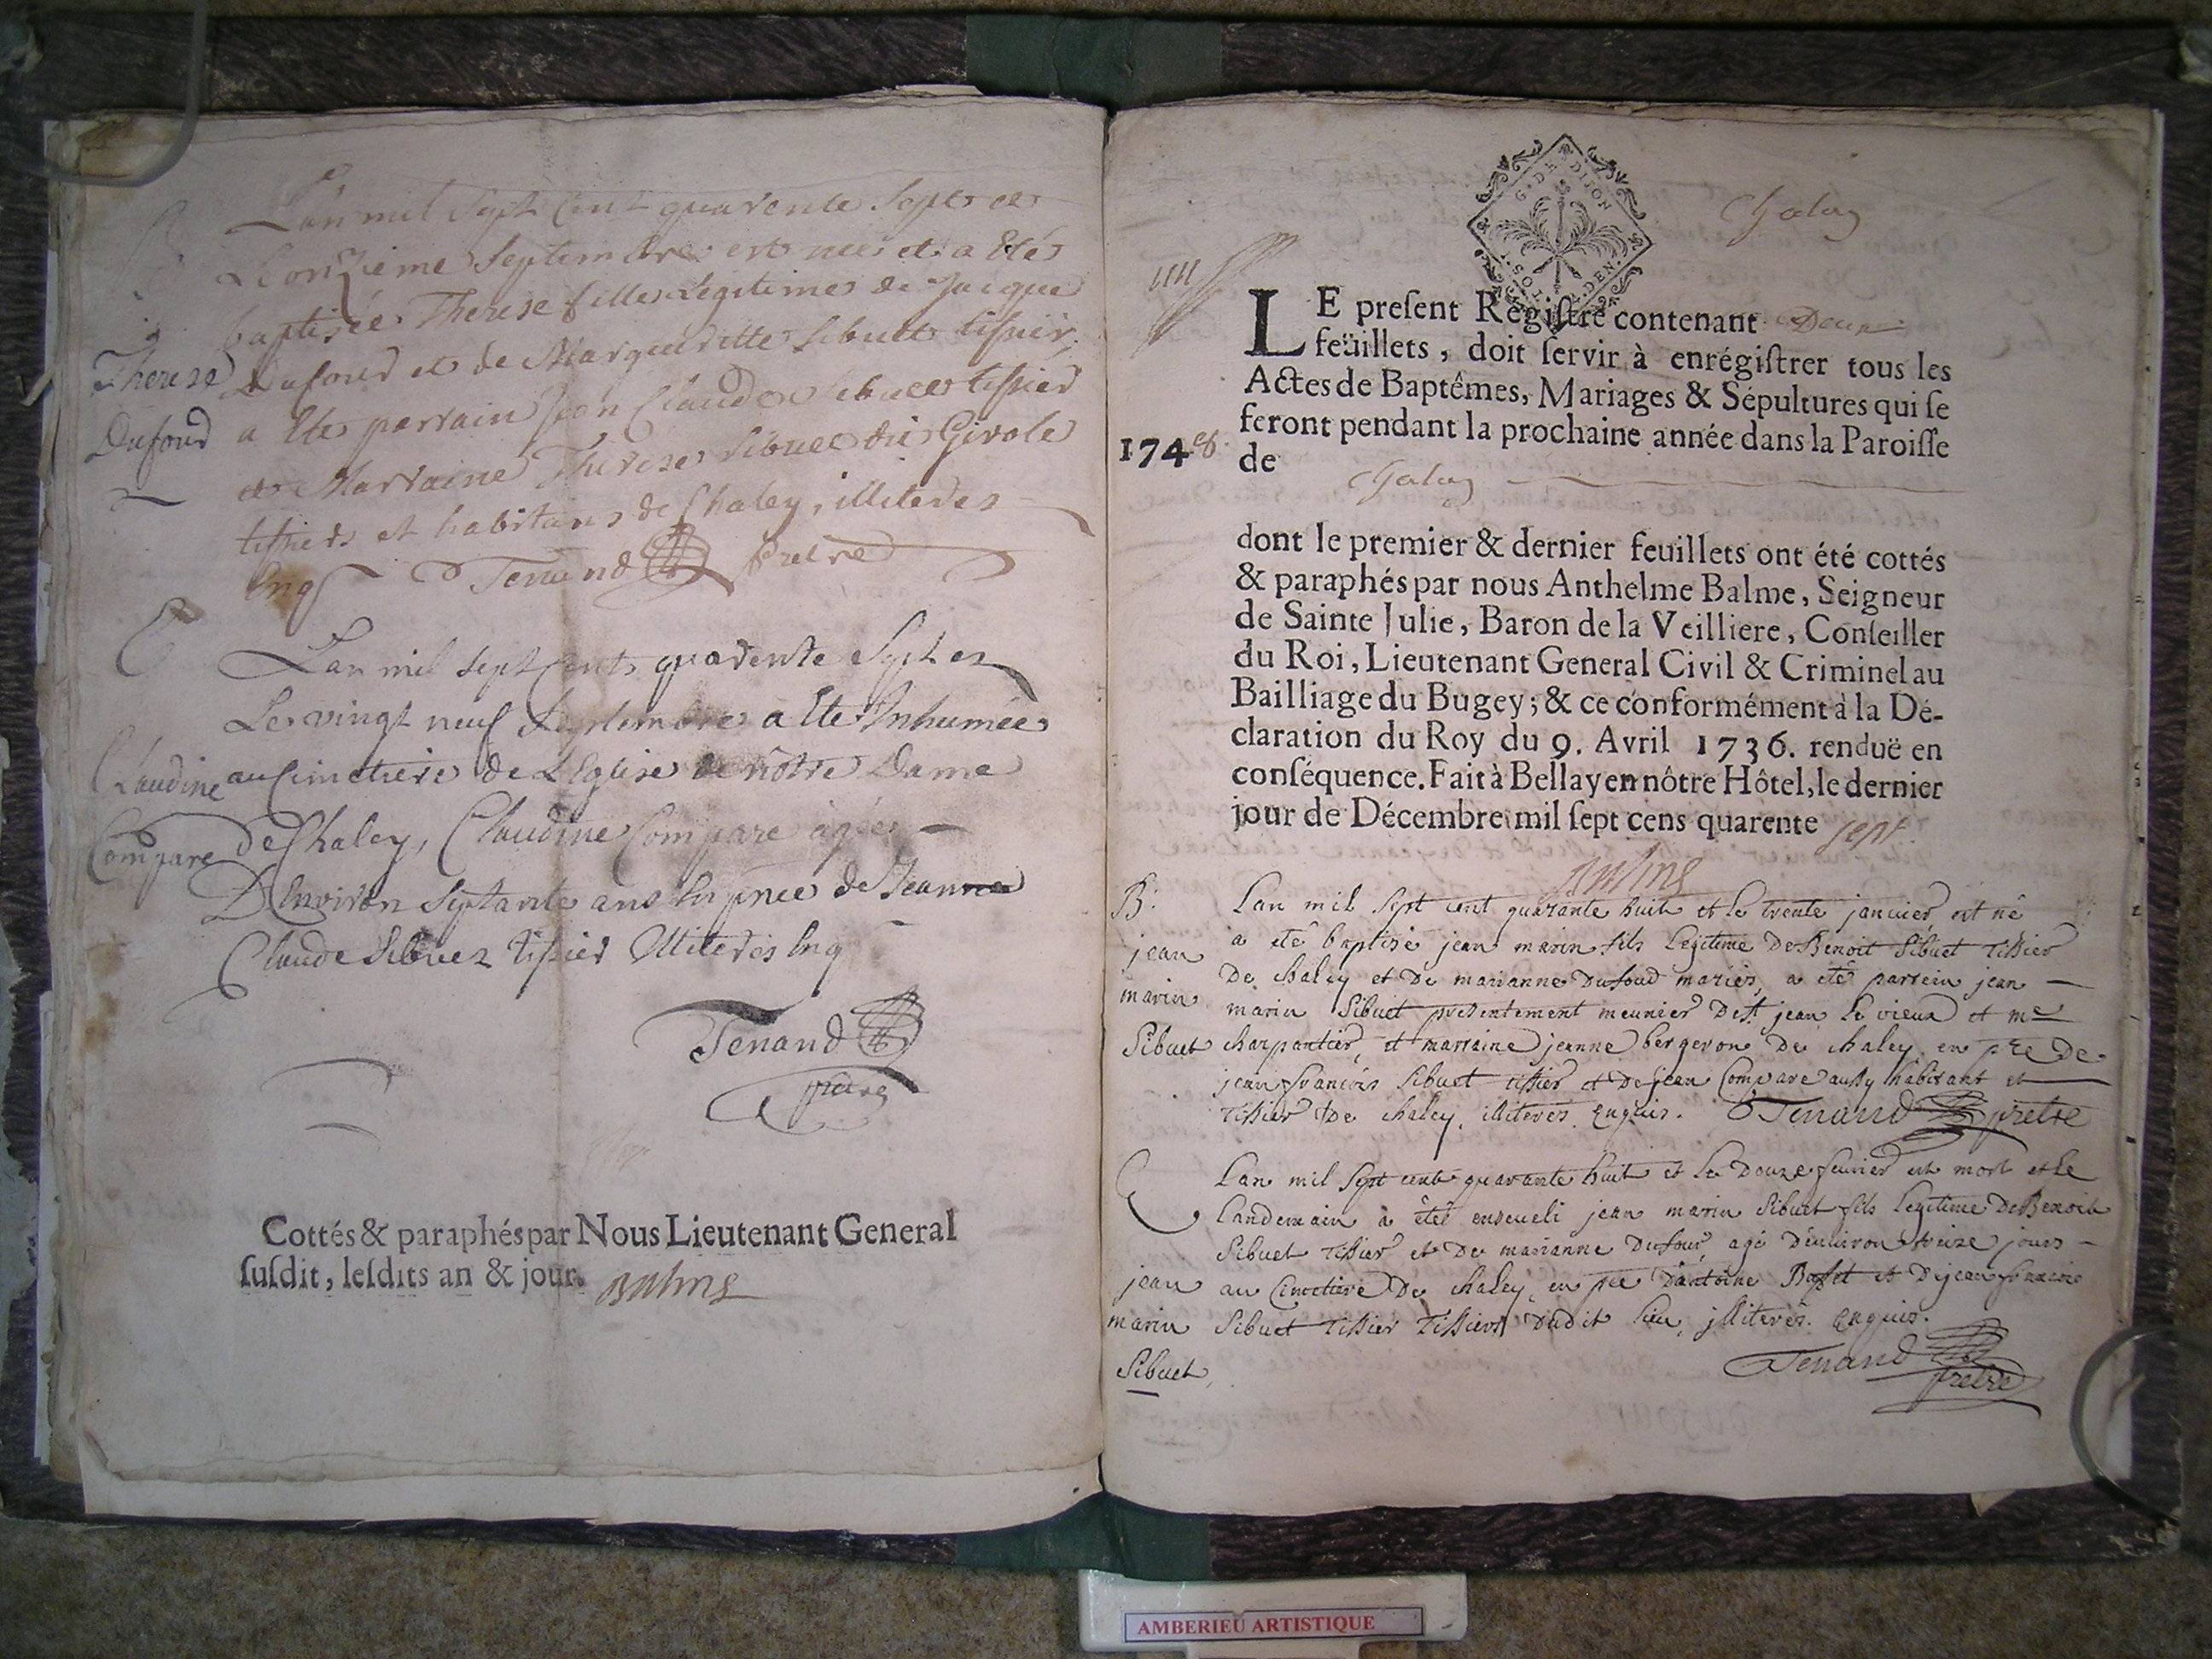 B:
L'an mil Sept Cent quarente Sept et
Le onzieme Septembre est née et a Etés
baptisée Therese fille Legitime de Jacque
Dufour et de Margueritte Sibuet tissier,
a Ete parrain Jean Claude Sibuet tissier
et Marraine Therese Sibuet du Girole
tissiers et habitans de Chaley, illiteres
Enq Tenand prêtre
Therese
Dufour
L'an mil sept Cents quarente Sept et
Le vingt neuf Septembre a Ete Inhumée
au Cimetiere de L'Eglise de nôtre Dame
de Chaley, Claudine Compare agée
D'Environ Septante ans En pnce de Jean
Claude Sibuet tissier Illiteres Enq
Tenand
Claudine
Compare
Cottés & paraphés par Nous Lieutenant General
susdit, lesdits an & jour. Balme
G. DE DIJON
Chaley
LE present Registre contenant Deux
feüillets, doit servir à enrégistrer tous les
Actes de Baptêmes, Mariages & Sépultures qui se
feront pendant la prochaine année dans la Paroisse
1748 de Chaley
dont le premier & dernier feuillets ont été cottés
& paraphés par nous Anthelme Balme, Seigneur
de Sainte Julie, Baron de la Veilliere, Conseiller
du Roi, Lieutenant General Civil & Criminel au
Bailliage du Bugey; & ce conformément à la Dé-
claration du Roy du 9. Avril 1736. renduë en
conséquence. Fait à Bellay en nôtre Hôtel, le dernier
jour de Décembre mil sept cens quarente sept.
Balme
B:
jean
marin
Sibuet
Lan mil Sept cent quarante huit et le trente janvier est né
a eté baptisé jean marin fils Legitime De Benoit Sibuet Tissier
De chaley et De marianne Dufour mariés, a eté parrein jean
marin Sibuet presentement meunier De St jean Le vieux et me
charpantier, et marraine jeanne bergeron De chaley en pce De
jean françois Sibuet tissier et De jean Compare aussy habitant et
Tissier De chaley, illiteres enquis. Tenand prêtre
Lan mil Sept cent quarante huit et le Douze fevrier est mort et le
Landemain a été enseveli jean marin Sibuet fils Legitime De Benoit
Sibuet Tissier et De marianne Dufour agé D'environ treize jours
au Cimetiere De chaley en pce D'antoine et De jean francois
Sibuet Tissier Tissiers Dudit Lieu, jlliterés. Enquis.
Tenand
prêtre
jean
marin
Sibuet
AMBERIEU ARTISTIQUE